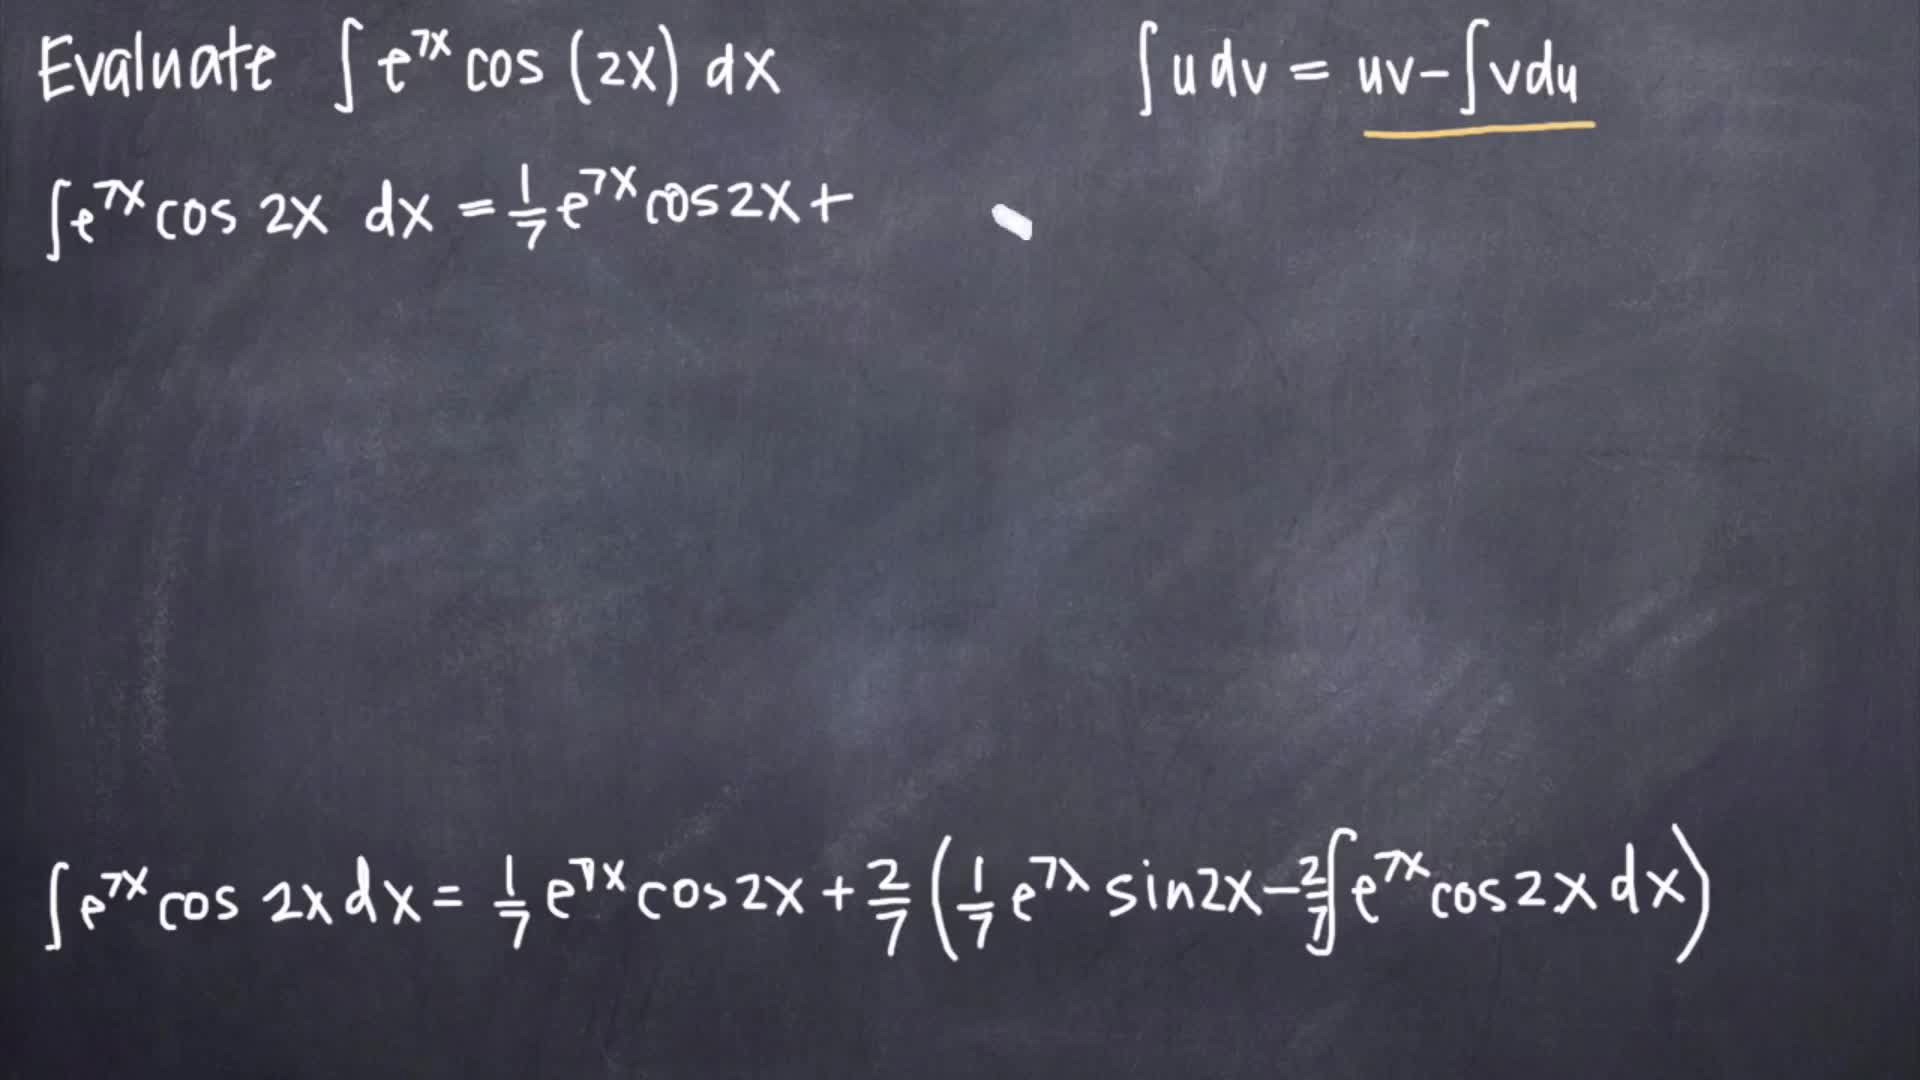 Evaluate ∫ e^{7x} cos (2x) dx
∫ u dv = uv - ∫ v du
∫ e^{7x} cos 2x dx = 1/7 e^{7x} cos 2x +
∫ e^{7x} cos 2x dx = 1/7 e^{7x} cos 2x + 2/7 ( 1/7 e^{7x} sin 2x - 2/7 ∫ e^{7x} cos 2x dx )